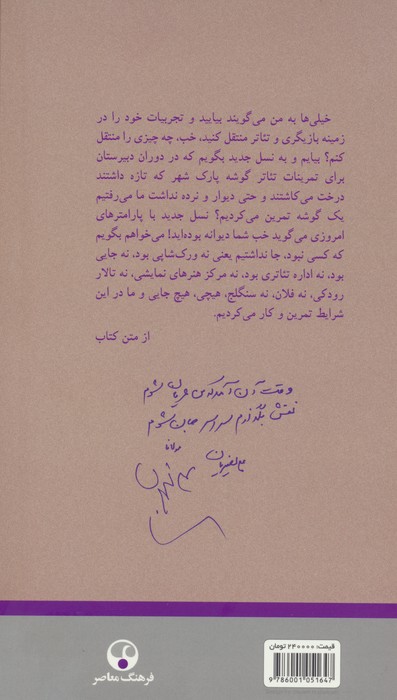 خیلی‌ها به من می‌گویند بیایید و تجربیات خود را در
زمینه بازیگری و تئاتر منتقل کنید، خب، چه چیزی را منتقل
کنم؟ بیایم و به نسل جدید بگویم که در دوران دبیرستان
برای تمرینات تئاتر گوشه پارک شهر که تازه داشتند
درخت می‌کاشتند و حتی دیوار و نرده نداشت ما می‌رفتیم
یک گوشه تمرین می‌کردیم؟ نسل جدید با پارامترهای
امروزی می‌گوید خب شما دیوانه بوده‌اید! می‌خواهم بگویم
که کسی نبود، جا نداشتیم یعنی نه ورک‌شاپی بود، نه جایی
بود، نه اداره تئاتری بود، نه مرکز هنرهای نمایشی، نه تالار
رودکی، نه فلان، نه سنگلج، هیچی، هیچ جایی و ما در این
شرایط تمرین و کار می‌کردیم.
از متن کتاب
وقت آن آمد که من عریان شوم
نقش بگذارم سراسر جان شوم
مولانا
قیمت: ۲۴۰۰۰۰ تومان
9 786001 051647
فرهنگ معاصر